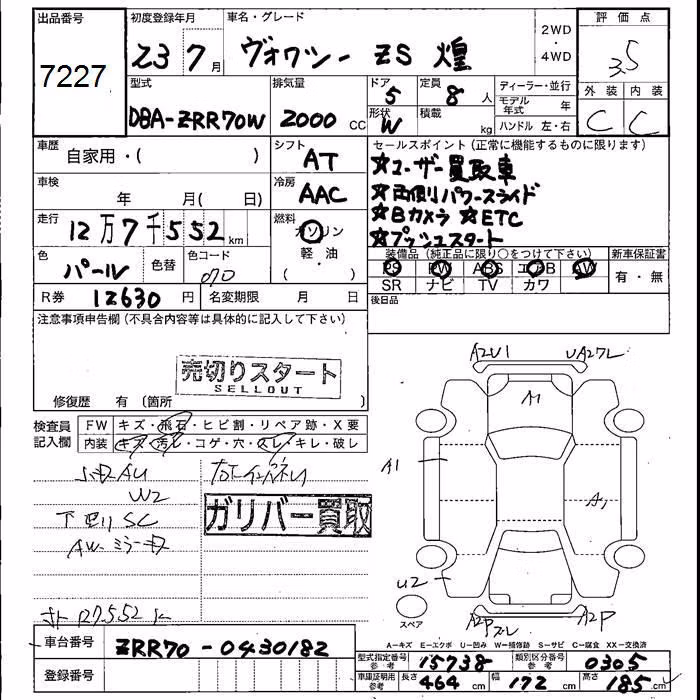 出品番号
7227
初度登録年月
23 7月
車名・グレード
ヴォクシー ZS 煌
2WD
・
4WD
評価点
3.5
型式
DBA-ZRR70W
排気量
2000 CC
ドア
5
定員
8 人
形状
W
積載
kg
ディーラー・並行
モデル年式 年
ハンドル 左・右
外装 内装
C C
車歴
自家用・( )
シフト
AT
車検
年 月( 日)
冷房
AAC
走行
12万7千552km
燃料
ガソリン
軽・油
( )
色
パール
色替
色コード
070
R券 12630円
名変期限 月 日
セールスポイント(正常に機能するものに限ります)
☆ユーザー買取車
☆両側パワースライド
☆Bカメラ ☆ETC
☆プッシュスタート
装備品(純正品に限り○をつけて下さい)
PS PW ABS エアB AW
SR ナビ TV カワ
新車保証書
有・無
後日品
注意事項申告欄(不具合内容等は具体的に記入して下さい)
売切りスタート
SELLOUT
修復歴 有(箇所
検査員
記入欄
FW キズ・飛石・ヒビ割・リペア跡・X要
内装 キズ・汚レ・コゲ・穴・スレ・キレ・破レ
W2
下廻りSC
AW・ミラーキズ
ガリバー買取
127552K
A2U1
UA27L
A1
A1
A1
U2
A2P
A2P
スペア
A-キズ E-エクボ U-凹み W-補修跡 S-サビ C-腐食 XX-交換済
車台番号 ZRR70-0430182
登録番号
型式指定番号
参考
15738
類別区分番号
参考
0305
車庫証明用
参考
長さ 464 cm 幅 172 cm 高さ 185 cm